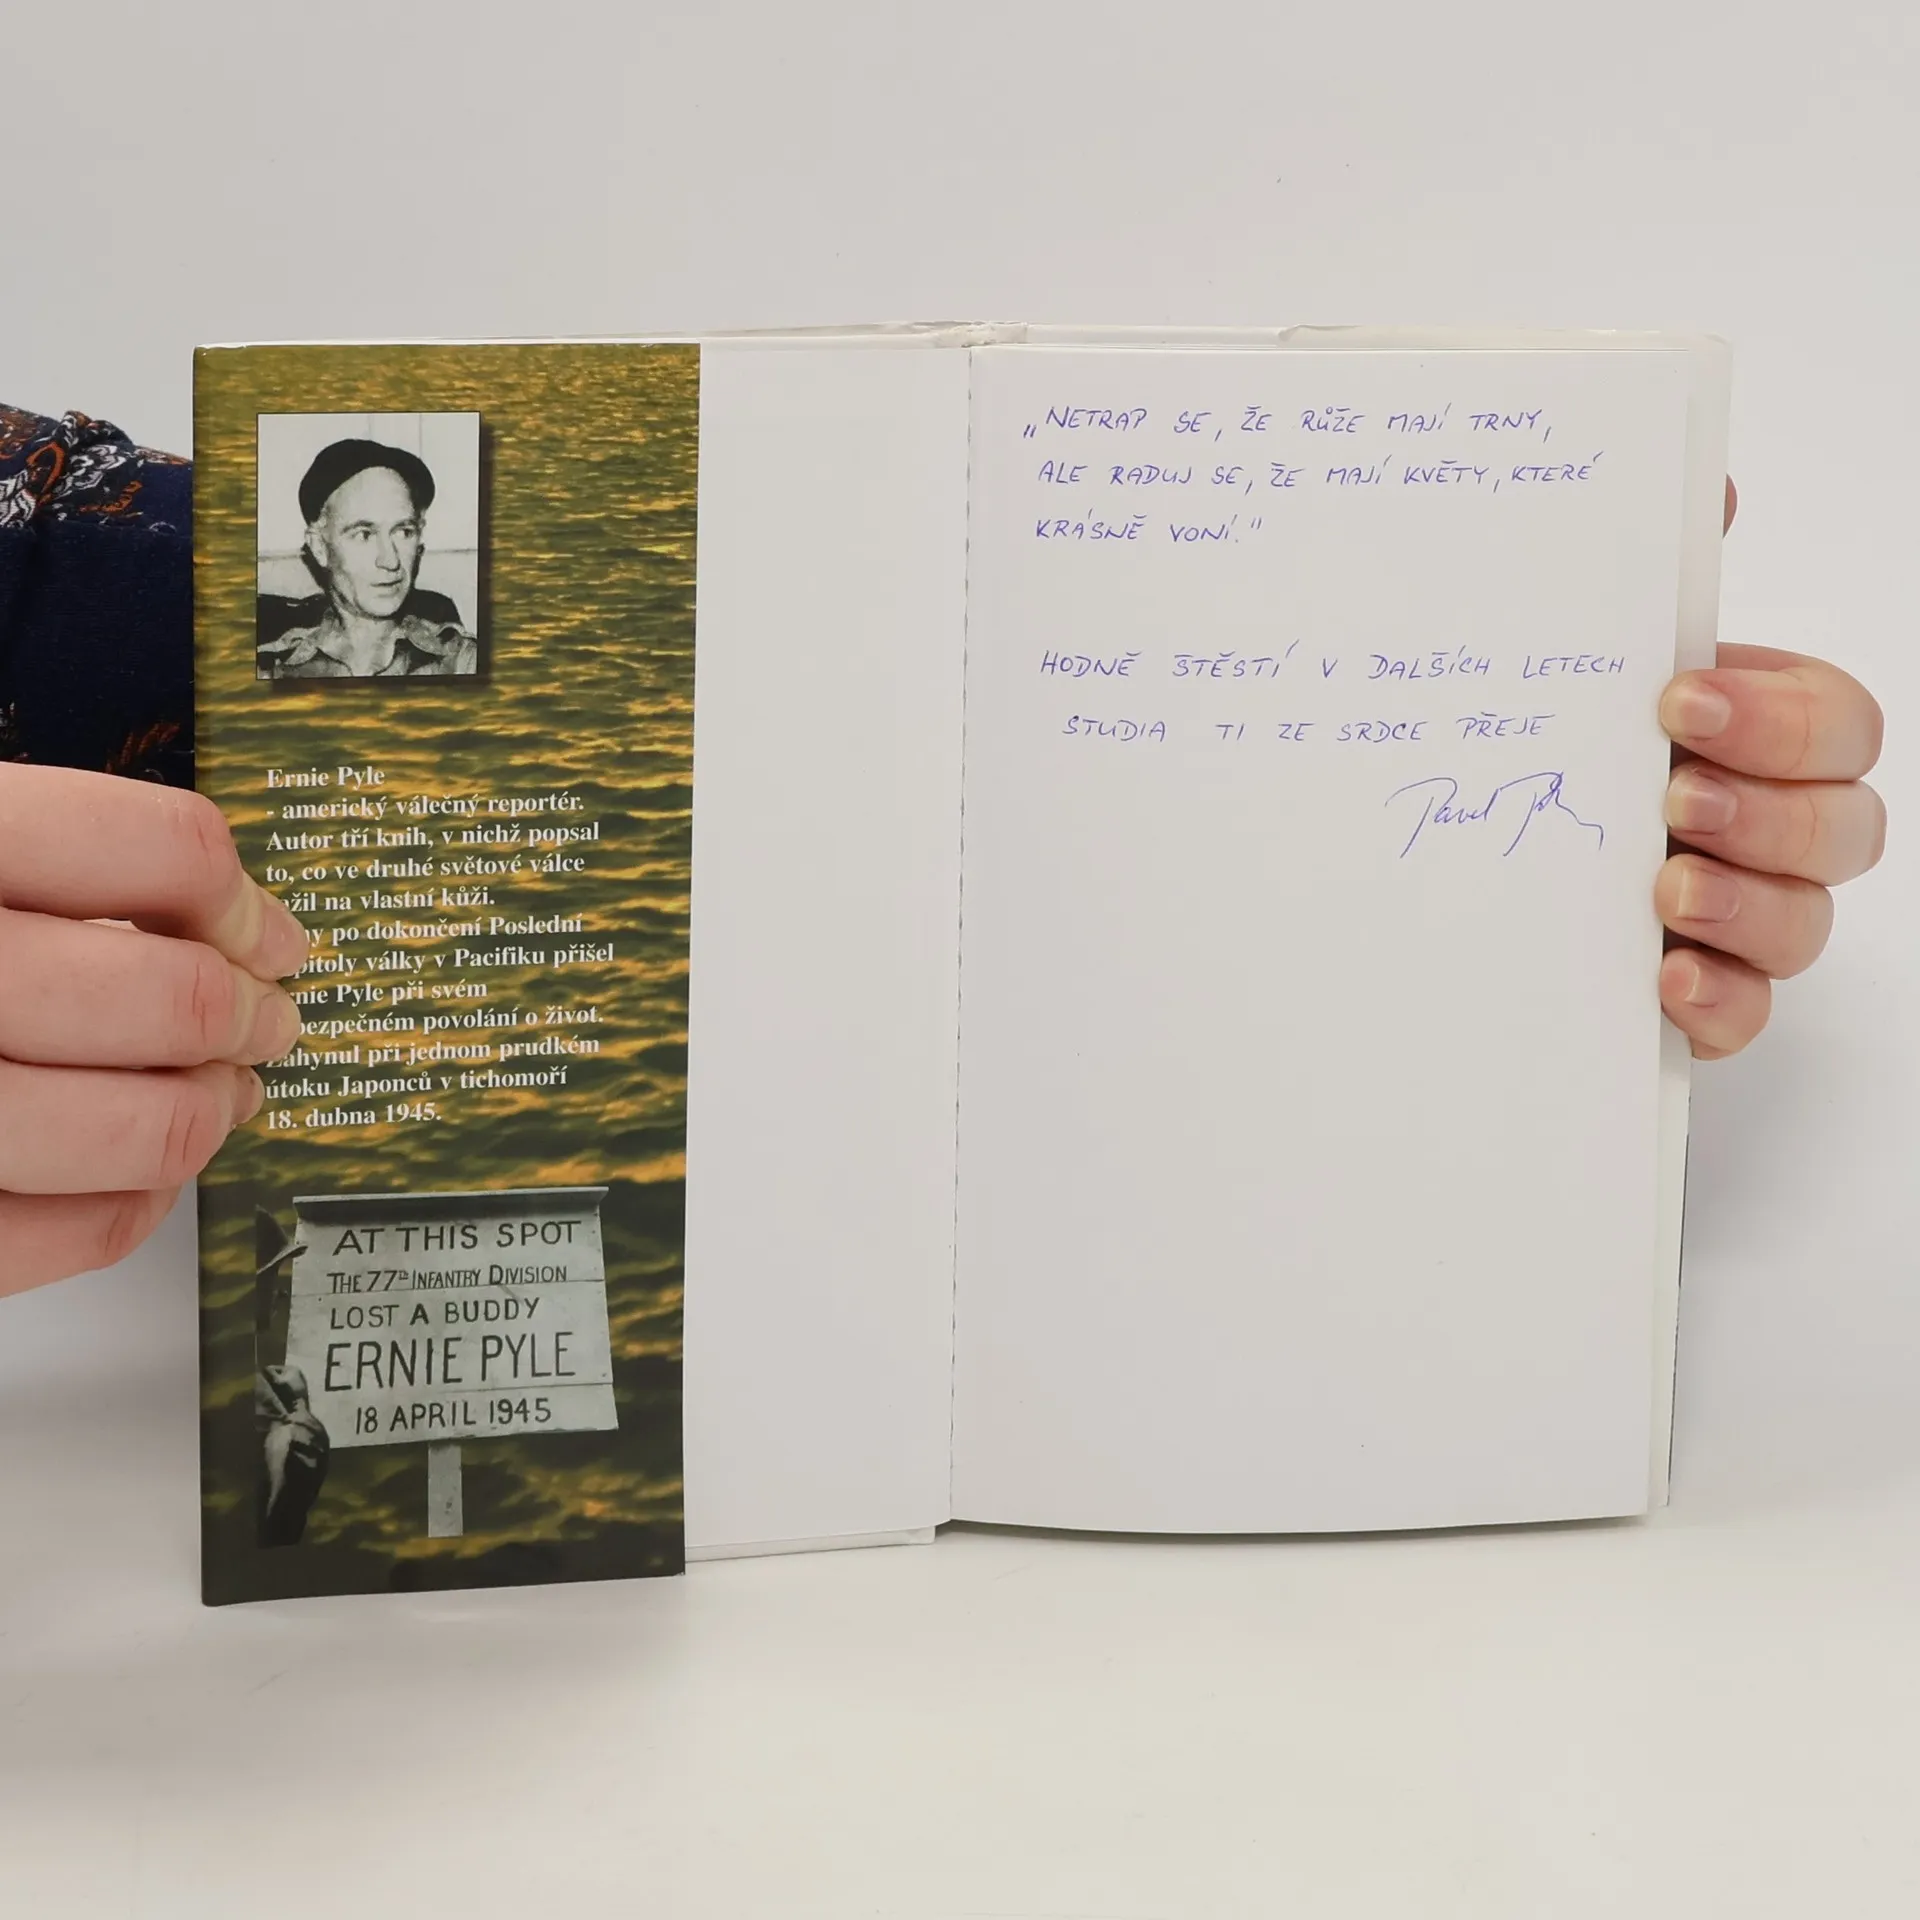 Ernie Pyle
- americký válečný reportér.
Autor tří knih, v nichž popsal
to, co ve druhé světové válce
na vlastní kůži.
po dokončení Poslední
války v Pacifiku přišel
Pyle při svém
povolání o život.
Zahynul při jednom prudkém
útoku Japonců v tichomoří
18. dubna 1945.
AT THIS SPOT
THE 77TH INFANTRY DIVISION
LOST A BUDDY
ERNIE PYLE
18 APRIL 1945
„NETRAP SE, ŽE RŮŽE MAJÍ TRNY,
ALE RADUJ SE, ŽE MAJÍ KVĚTY, KTERÉ
KRÁSNĚ VONÍ."
HODNĚ ŠTĚSTÍ V DALŠÍCH LETECH
STUDIA TI ZE SRDCE PŘEJE
Pavel